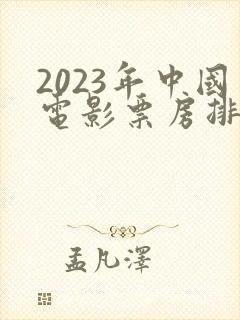 2023年中國
電影票房排
孟凡澤